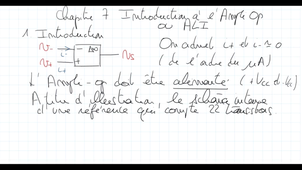 Chapitre 7 Introduction à l'Ampli Op
ou ALI
1 Introduction
On admet i+ et i- ≈ 0
(de l'ordre du µA)
v- i- - Δ∞ vs
v+ i+ +
L'Ampli-op doit être alimenté (+Vcc et
A titre d'illustration le schéma interne
d'une référence qui compte 22 transistors